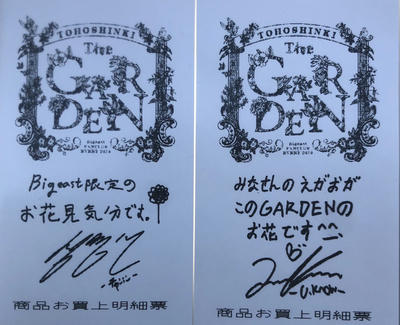 TOHOSHINKI
The
GAR
DEN
Bigeast
FANCLUB
EVENT 2019
Bigeast限定の
お花見気分です。
-チャンミン-
商品お買上明細票
TOHOSHINKI
The
GAR
DEN
Bigeast
FANCLUB
EVENT 2019
みなさんのえがおが
このGARDENの
お花です^^
-U-KNOW-
商品お買上明細票